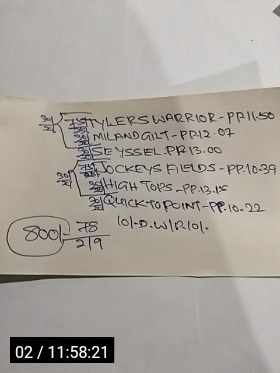 TYLERSWARRIOR-PP.11.50
MILANDGILT-PP.12.07
SEYSSEL.PP.13.00
JOCKEYS FIELDS-PP.10.39
HIGH TOPS-PP.13.15
QUICK-TO POINT-PP.10.22
800/- 78 10/-D.W/P.10/-
2/9
02 / 11:58:21